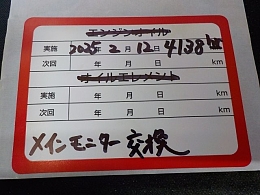 エンジンオイル
実施 2025年2月12日 4138 km
次回 年 月 日 km
オイルエレメント
実施 年 月 日 km
次回 年 月 日 km
メインモニター交換